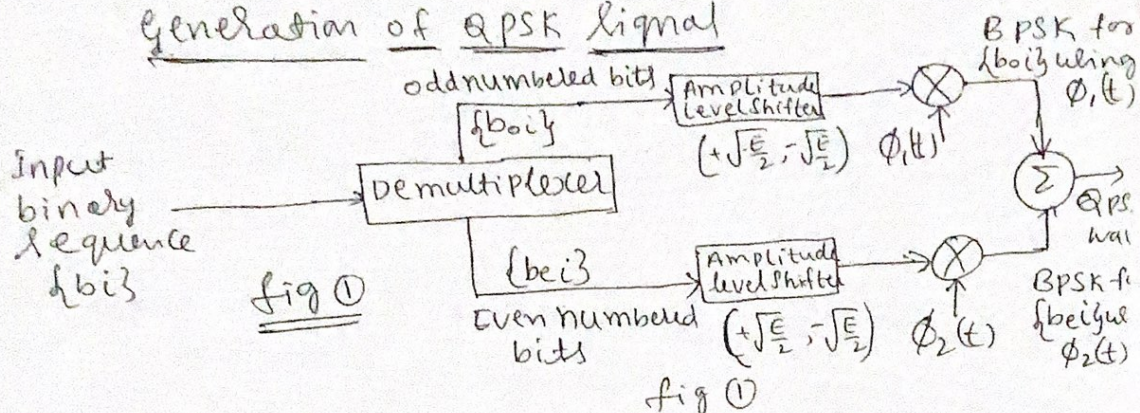 Generation of QPSK Signal
BPSK for
{boi} using
ϕ₁(t)
odd numbered bits
{boi}
Amplitude
level shifter
(+√E/2, -√E/2)
ϕ₁(t)
Input
binary
sequence
{bi}
Demultiplexer
Σ
QPS
wav
fig ①
{bei}
Even numbered
bits
Amplitude
level shifter
(+√E/2, -√E/2)
ϕ₂(t)
BPSK f
{bei} us
ϕ₂(t)
fig ①